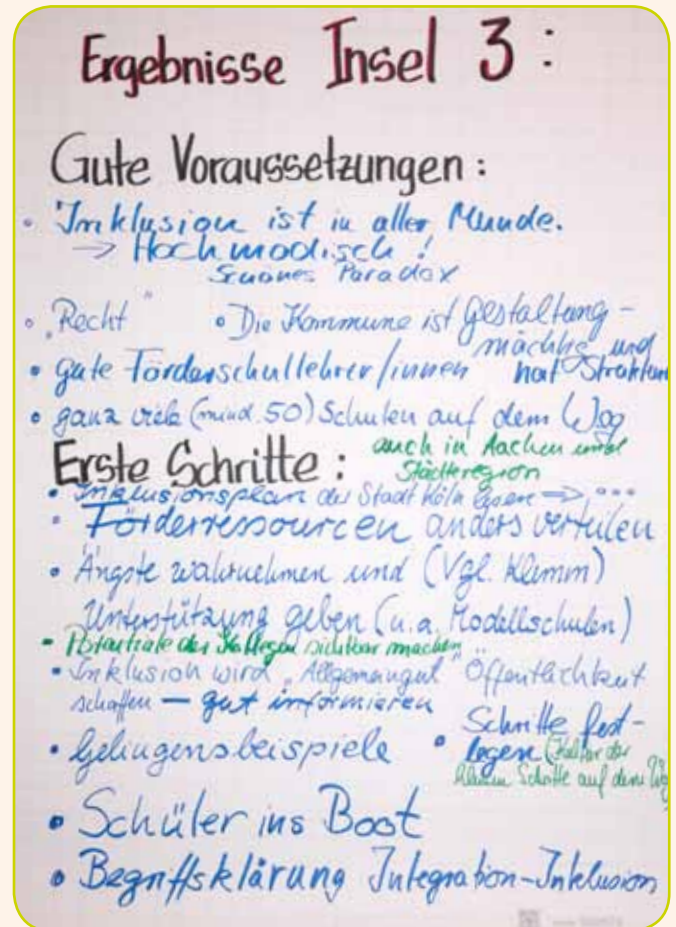 Ergebnisse Insel 3 :
Gute Voraussetzungen :
• Inklusion ist in aller Munde.
→ Hochmodisch !
Schönes Paradox
• „Recht"
• Die Kommune ist Gestaltung-
mächtig und
• gute Förderschullehrer/innen
hat Struktur
• ganz viele (mind. 50) Schulen auf dem Weg
auch in Aachen und
Städteregion
Erste Schritte :
• Inklusionsplan der Stadt Köln lesen → ...
• Förderressourcen anders verteilen
• Ängste wahrnehmen und (Vgl. Klemm)
Unterstützung geben (u.a. Modellschulen)
- Potentiale der Kollegen sichtbar machen
• Inklusion wird „Allgemeingut" Öffentlichkeit
schaffen — gut informieren
• Gelingensbeispiele
• Schritte fest-
legen (Kultur der
kleinen Schritte auf dem Weg
• Schüler ins Boot
• Begriffsklärung Integration-Inklusion